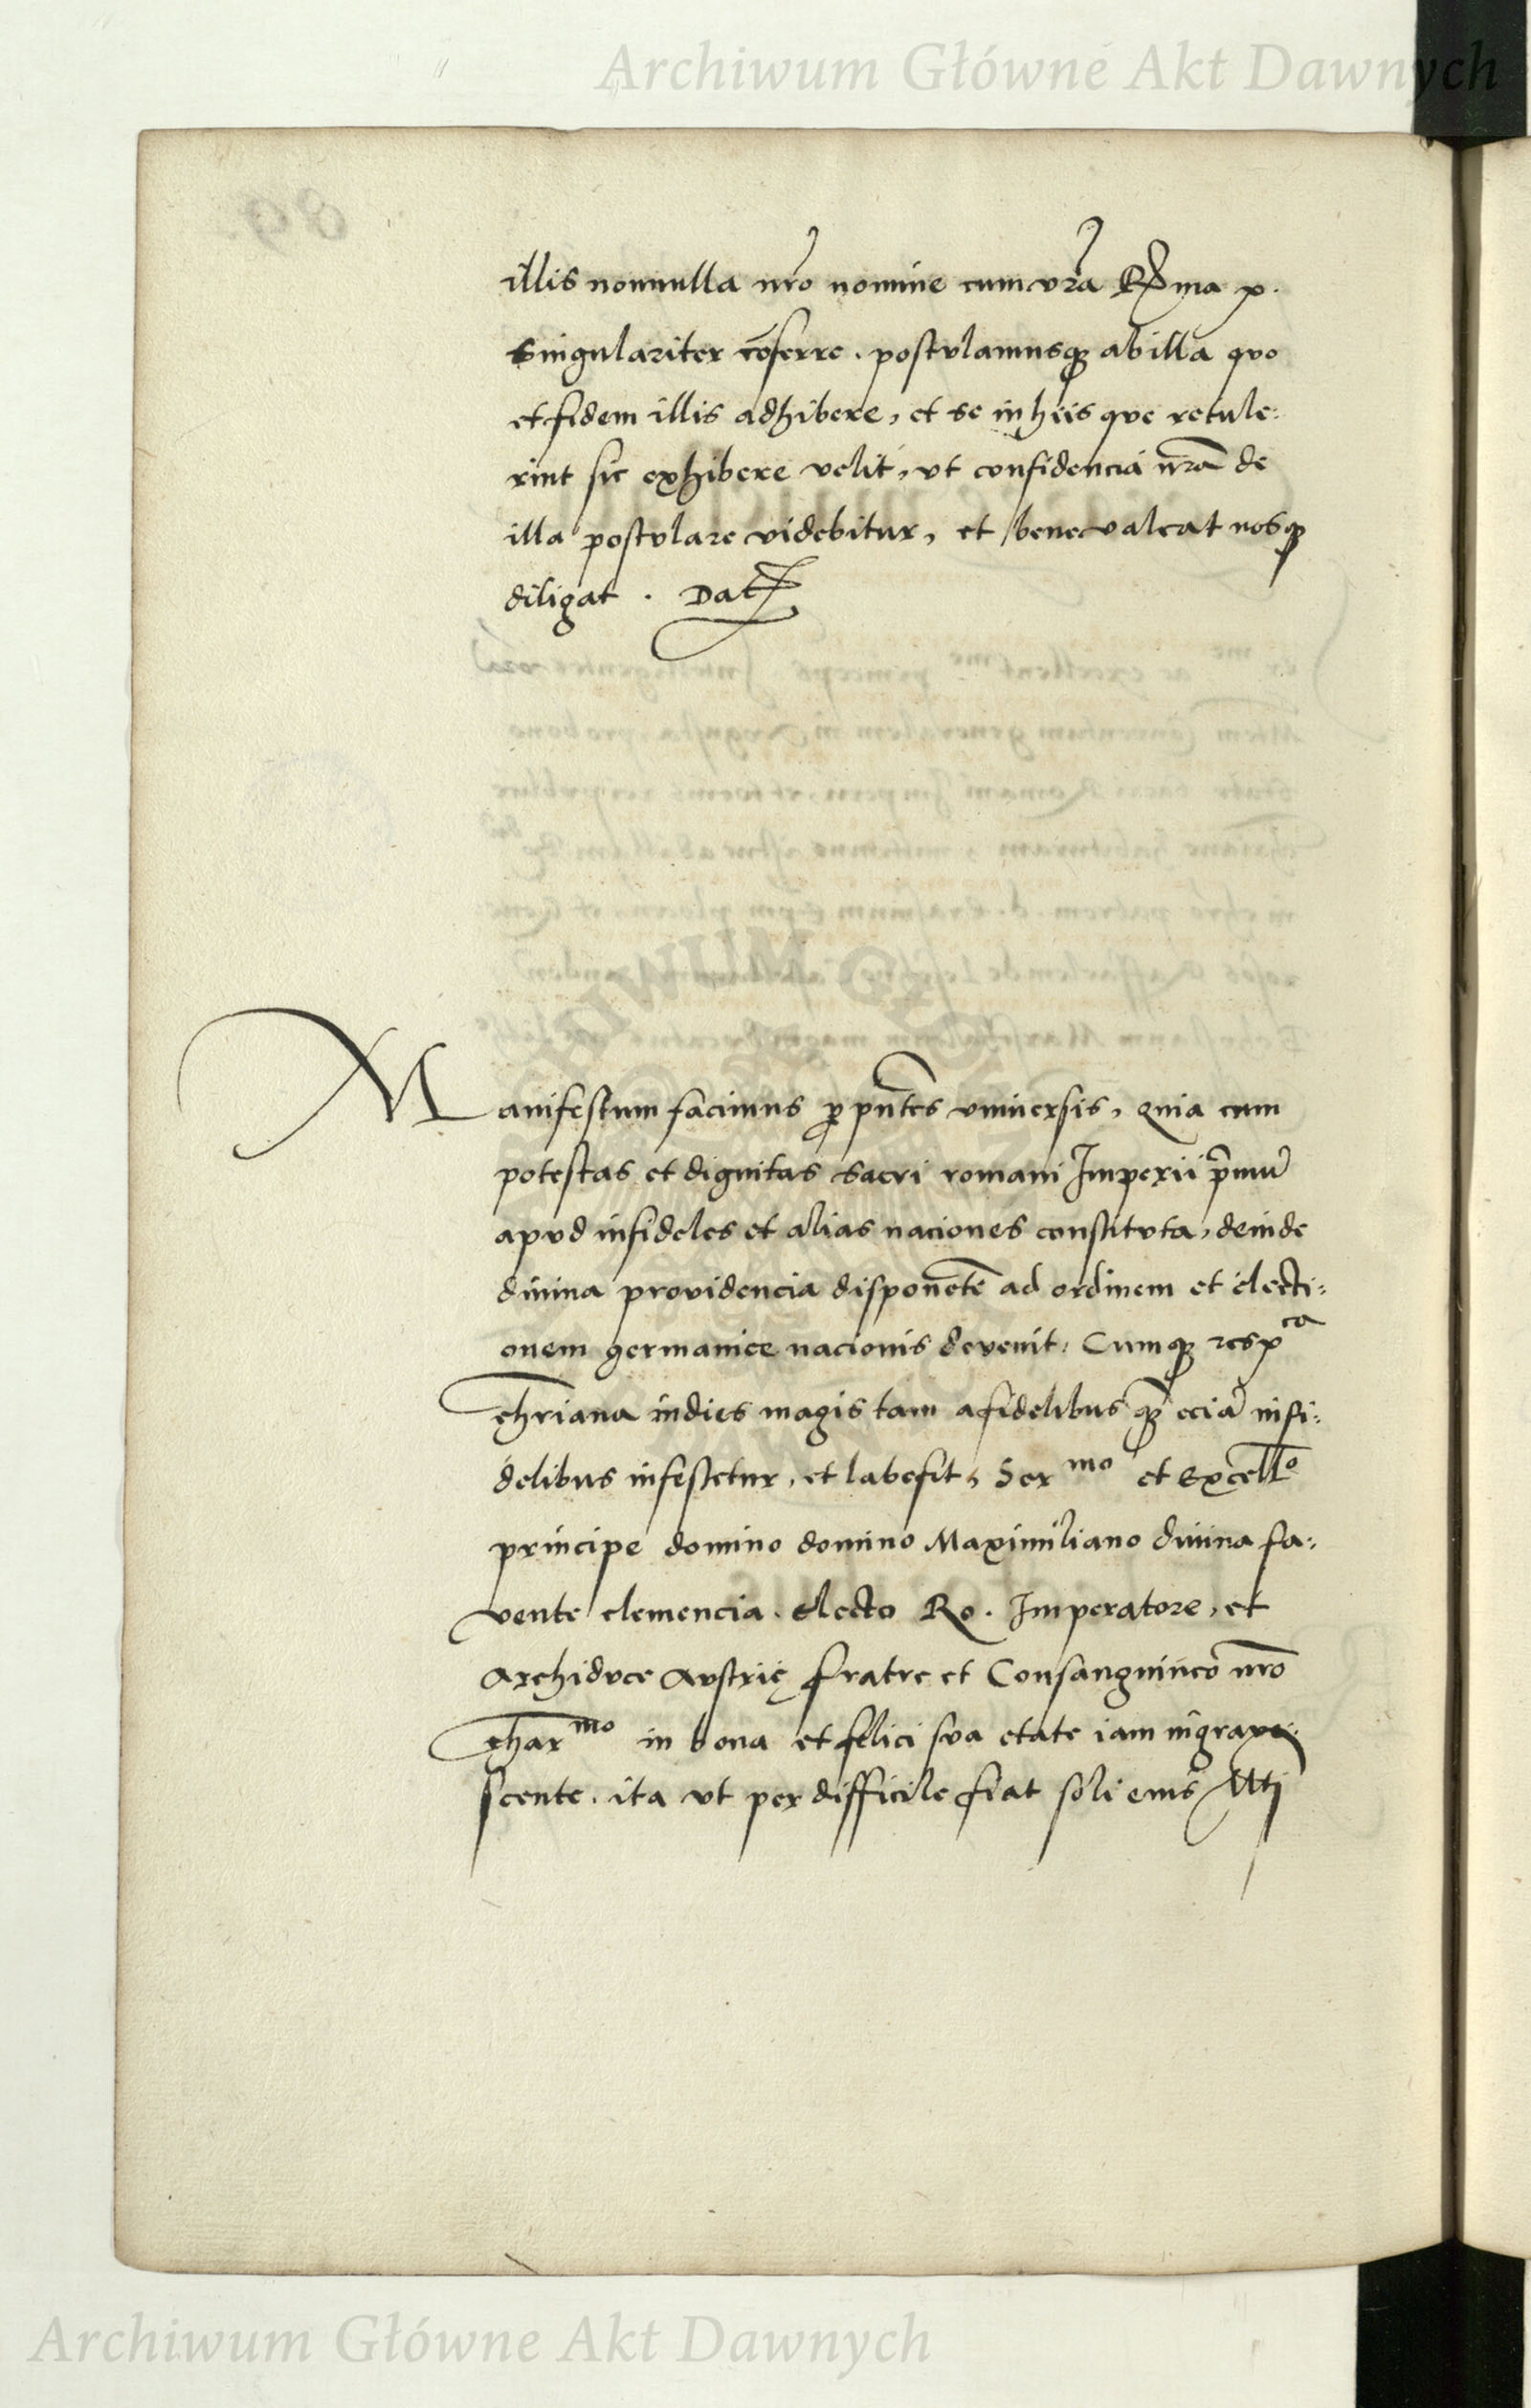 Archiwum Główne Akt Dawnych
89.
illis nonnulla nro nomine cum vra R ma p.
singulariter coferre . postulamusq ab illa quo
et fidem illis adhibere, et se in hiis que retule:
rint sic exhibere velit, ut confidencia nra de
illa postulare videbitur, et bene valeat nosq
diligat . Dat
Manifestum facimus p pntes universis, quia cum
potestas et dignitas sacri romani Imperii primu
apud infideles et alias naciones constituta, deinde
divina providencia disponente ad ordinem et electi:
onem germanice nacionis devenit: Cumq resp ca
chriana indies magis tam a fidelibus q ecia infi:
delibus infestetur, et labefit, Ser mo et Excell o
principe domino domino Maximiliano divina fa:
vente clemencia . electo Ro . Imperatore, et
Archiduce Austrię fratre et Consanguineo nro
char mo in bona et felici sua etate iam ingrave:
scente . ita ut per difficile fiat soli eius Mti
Archiwum Główne Akt Dawnych